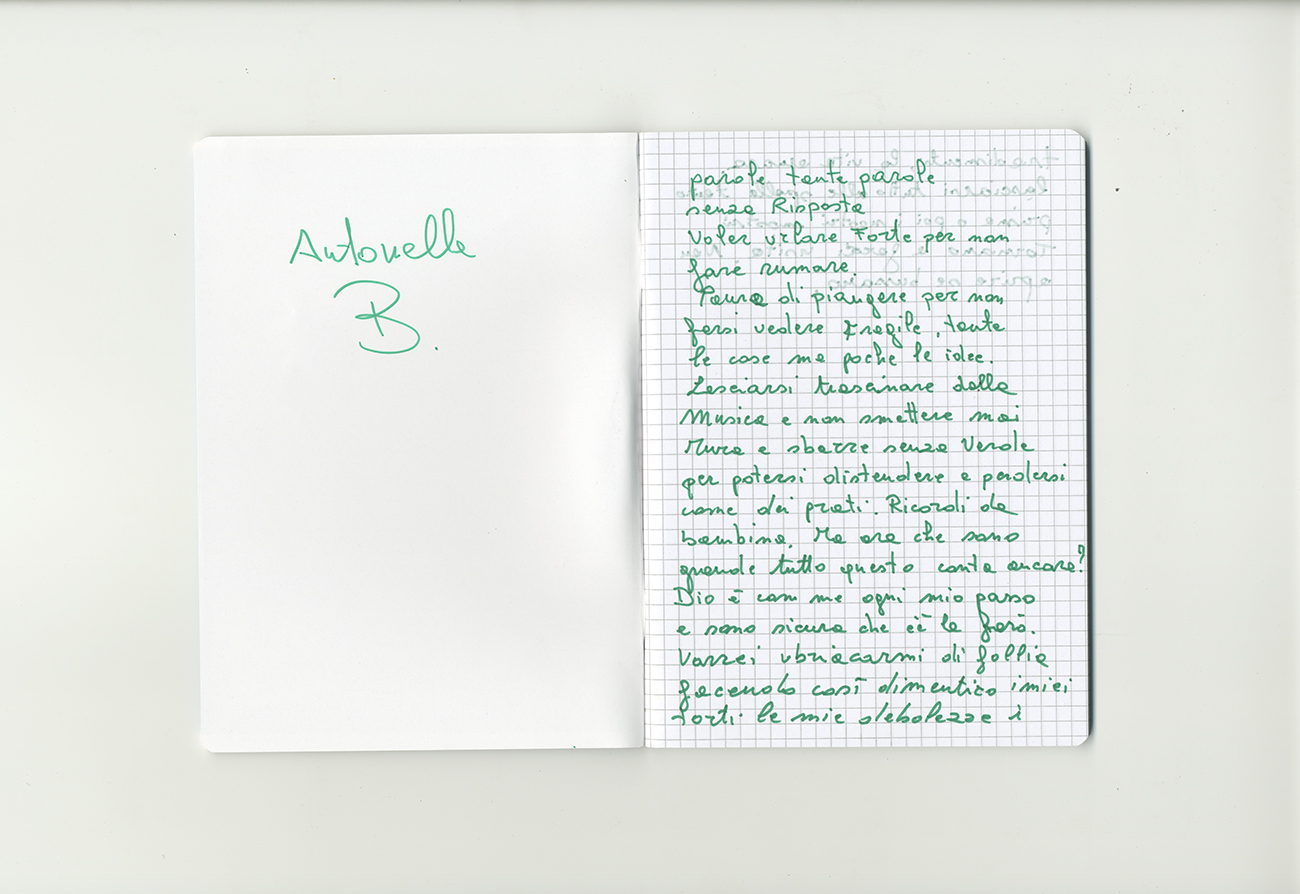 Antonella
B.
parole tante parole
senza Risposta
Voler urlare Forte per non
fare rumare.
Paura di piangere per non
farsi vedere Fragile, tante
le cose ma poche le idee.
Lasciarsi trascinare dalla
Musica e non smettere mai
Mura e sbarre senza Verde
per potersi distendere e perdersi
come dei prati. Ricordi da
bambina. Ma ora che sono
grande tutto questo conta ancora?
Dio è con me ogni mio passo
e sono sicura che ce la farò.
Vorrei ubriacarmi di follia
facendo così dimentico i miei
torti. le mie debolezze i